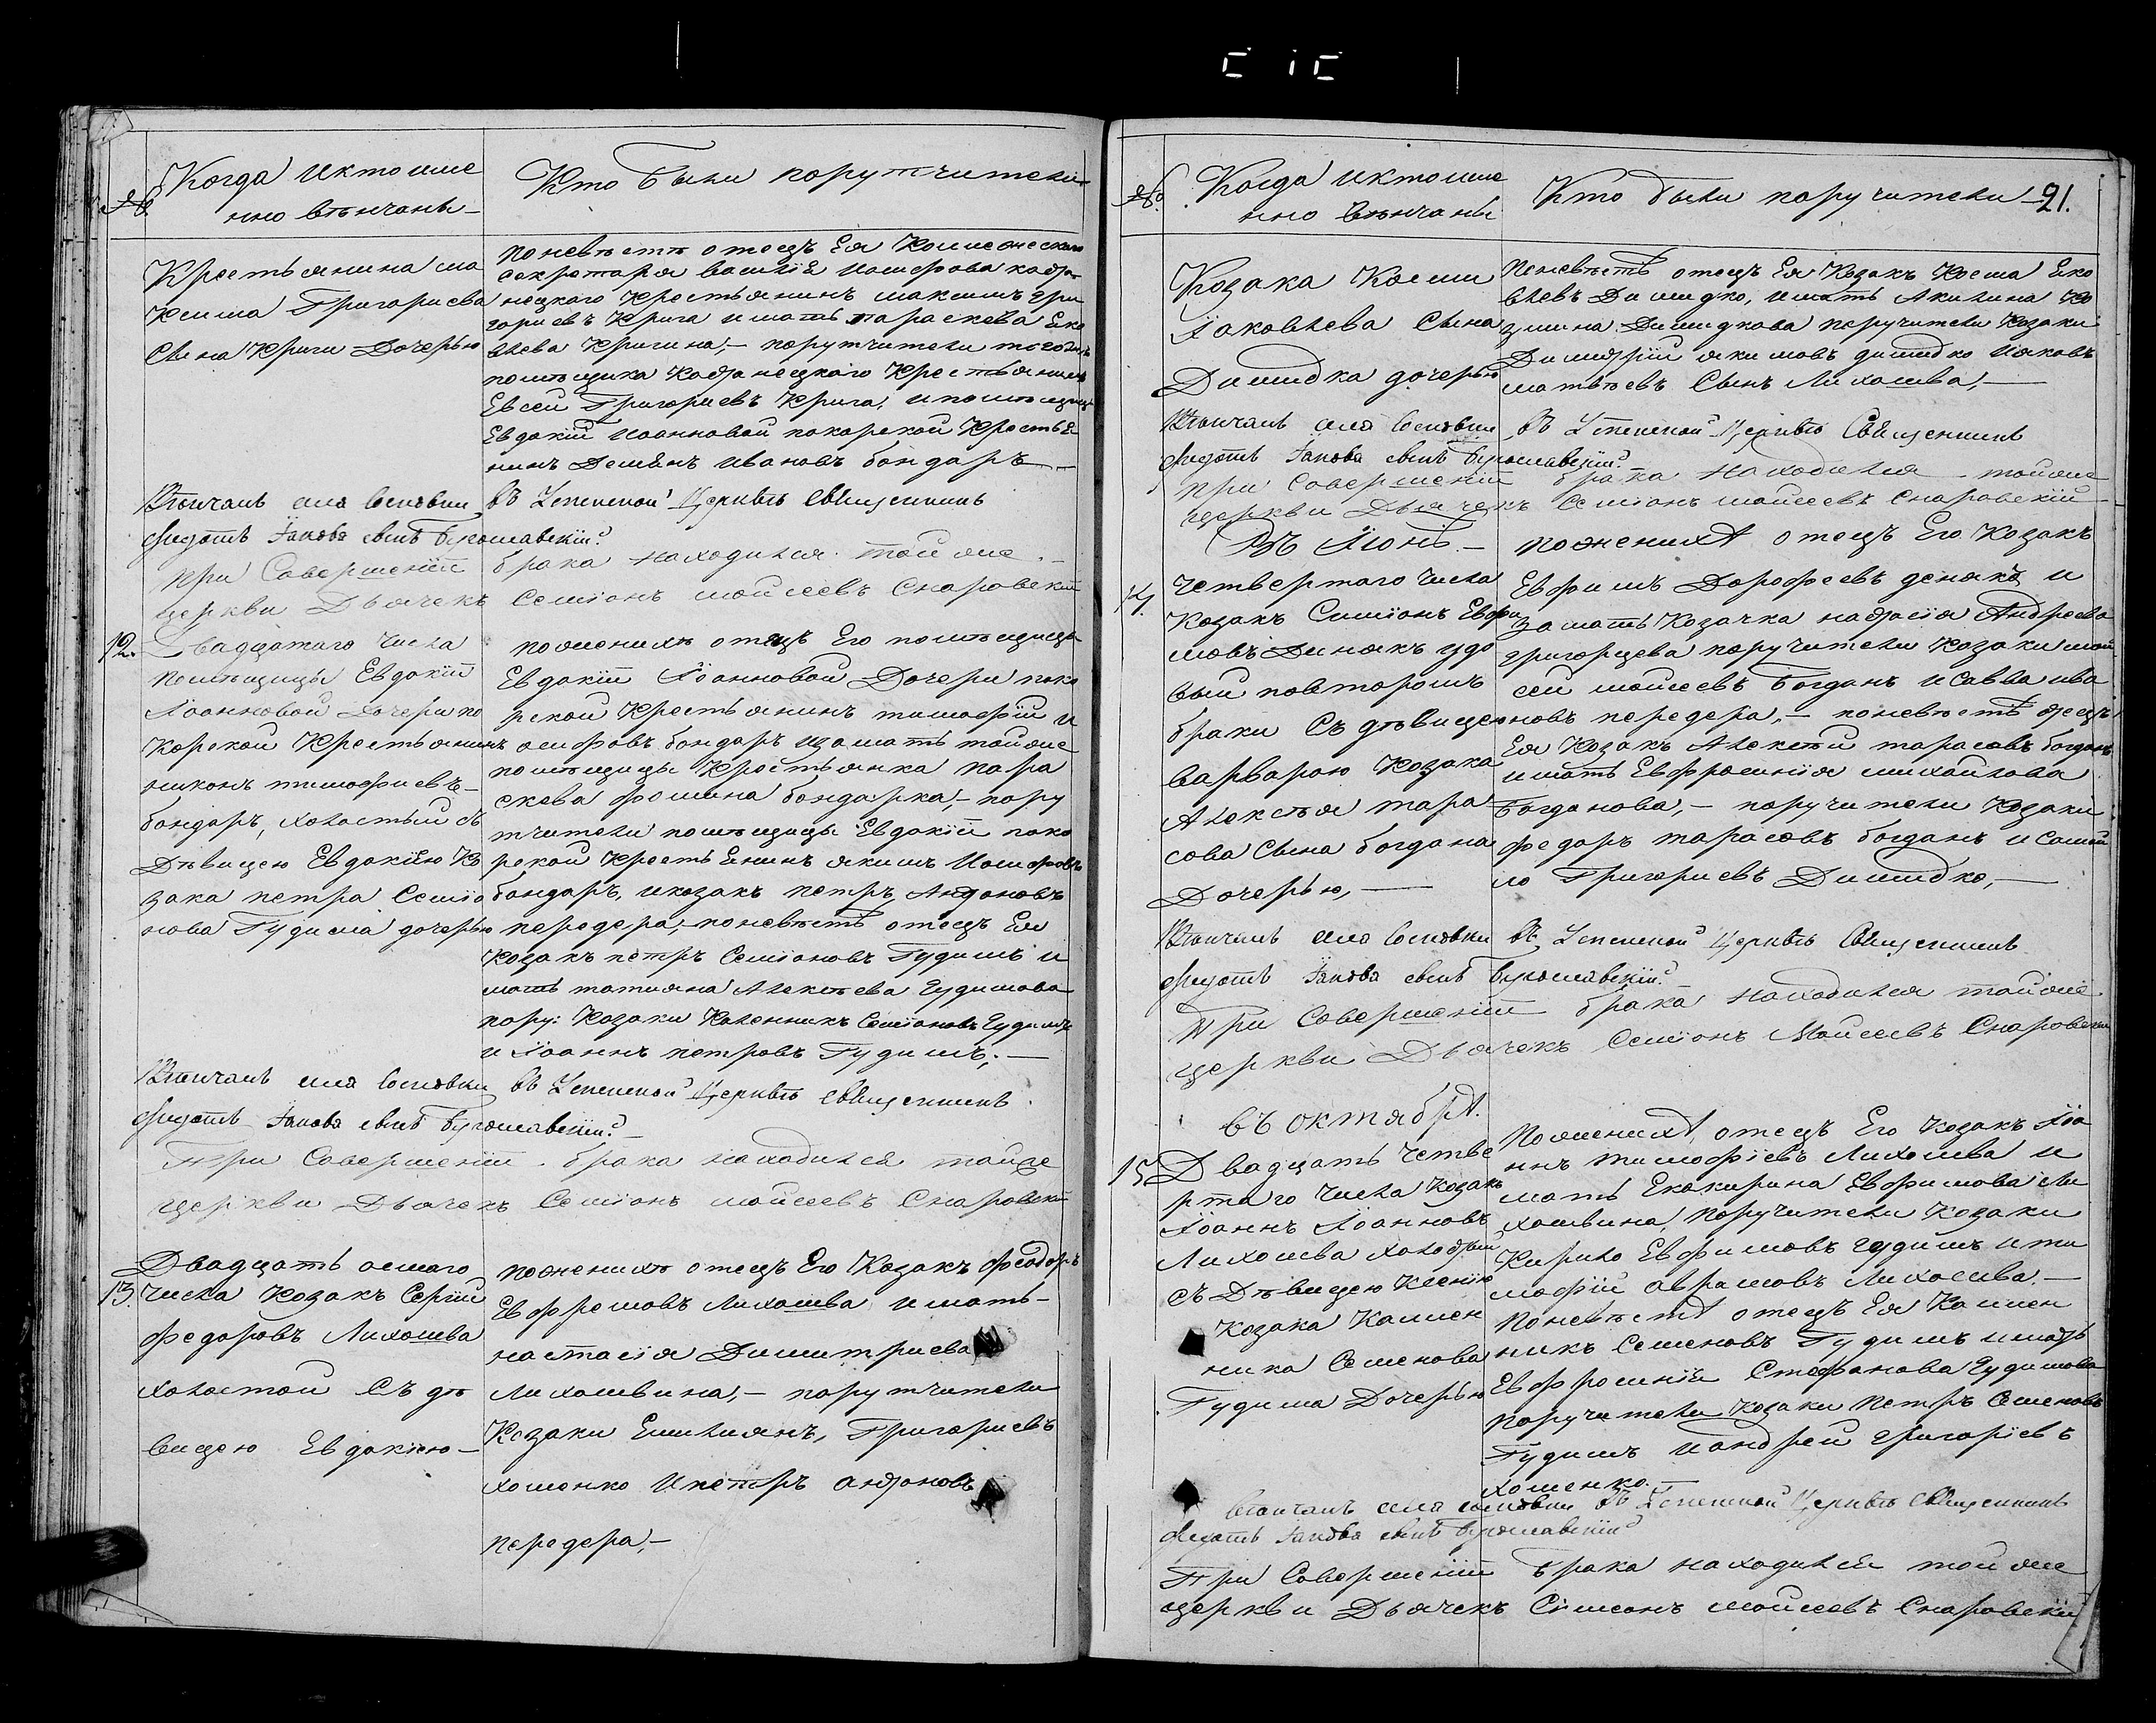 № Когда иктоиме
нно вѣнчаны
Кто были порутчители
Крестьянина ма
ксима Григориева
Сына Криги Дочерью
поневѣстѣ отецъ Ея
секротаря василїя
нецкого Крестьянинъ максимъ гри
гориевъ Крига имать параскева Еко
влева Кригина,– порутчители тогожъ
помѣщика Крестьянинъ
Евсей Григориевъ Крига, ипомѣщицы
Евдокїй Иоанновой покорской Крестья
нинъ Демянъ Ивановъ бондаръ –
Вѣнчалъ въ Успенской Церквѣ священникъ
Федотъ Іаковъ сынъ
при Совершенїи брака находился тойже
церкви Дьячекъ Семїонъ мойсеевъ Снаровскїй
12. Двадцатаго Числа
помѣщицы Евдокїй
Іоанновой Дочери по
корской Крестьянинъ
никонъ тимофиевъ –
бондаръ, холостый съ
Дѣвицею Евдокїею Ко
зака петра Семїо
нова Гудима дочерью
поженихѣ отецъ Его помѣщицы
Евдокїи Іоанновой Дочери поко
рской Крестьянинъ тимофїй и
осифовъ бондаръ изамать тойже
помѣщицы Крестьянка пара
скева фомина бондарка,– пору
тчители помѣщицы Евдокїй поко
рской Крестьянинъ якимъ Иосифовъ
бондаръ, икозакъ петръ Андоновъ
передера,– поневѣстѣ отецъ Ея
Козакъ петръ Семїоновъ Гудимъ и
мать татияна Алексѣева Гудимова
пору: Козаки Каленникъ Семїоновъ Гудимъ
и Іоаннъ петровъ Гудимъ; –
Вѣнчалъ въ Успенской Церквѣ священникъ
Федотъ Іаковъ сынъ
При Совершенїи брака находился тойже
церкви Дьячекъ Семїонъ мойсеевъ Снаровскїй
13. Двадцать осмаго
числа Козакъ Сергїй
федоровъ Лихошва
холостой Съ дѣ
вицею Евдокїею –
поженихѣ отецъ Его Козакъ Феодоръ
Ефремовъ Лихошва имать –
настасїя Димитриева
Лихошвина,– порутчители
Козаки Емилиянъ, Григориевъ
хоменко ипетръ андоновъ
передера,–
№. Когда иктоиме
нно вѣнчаны
Кто были поручители – 21.
Козака Косми
Іаковлева Сына
Димидка дочерью
Поневѣстѣ отецъ Ея Козакъ Косма Еко
влевъ Димидко, имать Акилина Ко
змина Димидкова поручители Козаки
Димитрїй якимовъ димидко Ияковъ
матвѣевъ Сынъ Лихошва,–
Вѣнчалъ въ Успенской Церквѣ Священникъ
Федотъ Іаковъ сынъ
при Совершенїи брака Находился тойже
церкви Дьячекъ Семїонъ мойсеевъ Снаровскїй
Въ Іюнѣ. –
14. Четвертаго Числа
Козакъ Симїонъ Евфи
мовъ Динякъ удо
вый повторомъ
браки Съ дѣвицею
варварою Козака
Алексѣя тара
сова Сына богдана
Дочерью,–
поженихѣ отецъ Его Козакъ
Евфимъ Дорофеевъ и
замать Козачка настасїя Андреева
григорцева поручители Козаки мой
сей мойсеевъ Богданъ иСавва ива
новъ передера,– поневѣстѣ отецъ
Ея Козакъ Алексѣй тарасовъ богданъ
имать Евфросинїя михайлова
Богданова,– поручители Козаки
федоръ тарасовъ богданъ иСамой
ло Григориевъ Димидко,–
Вѣнчалъ въ Успенской Церквѣ Священникъ
Федотъ Іаковъ сынъ
При Совершенїи брака находился тойже
церкви Дьячекъ Семїонъ Мойсеевъ Снаровскїй
въ октябрѣ.
15 Двадцать Четве
ртаго Числа Козакъ
Іоаннъ Іоанновъ
Лихошва холостый
съ Дѣвицею Ксенїю
Козака Калиен
ника Семенова
Гудима Дочерью
Поженихѣ, отецъ Его Козакъ Іоа
ннъ тимофїевъ Лихошва и
мать Екакирина Евфимова Ли
хошвина, поручители Козаки
Кирило Евфимовъ гудимъ ити
мофїй аврамовъ Лихошва. –
Поневѣстѣ отецъ Ея Калиен
никъ Семеновъ Гудимъ имать
Евфросинїи Стефанова Гудимова
поручители Козаки Петръ Семеновъ
Гудимъ иандрей григорїевъ
хоменко. –
Вѣнчалъ въ Успенской Церквѣ священникъ
Федотъ Іаковъ сынъ
При Совершенїи брака находился тойже
церкви Дьячекъ Симеонъ мойсеевъ Снаровскїй